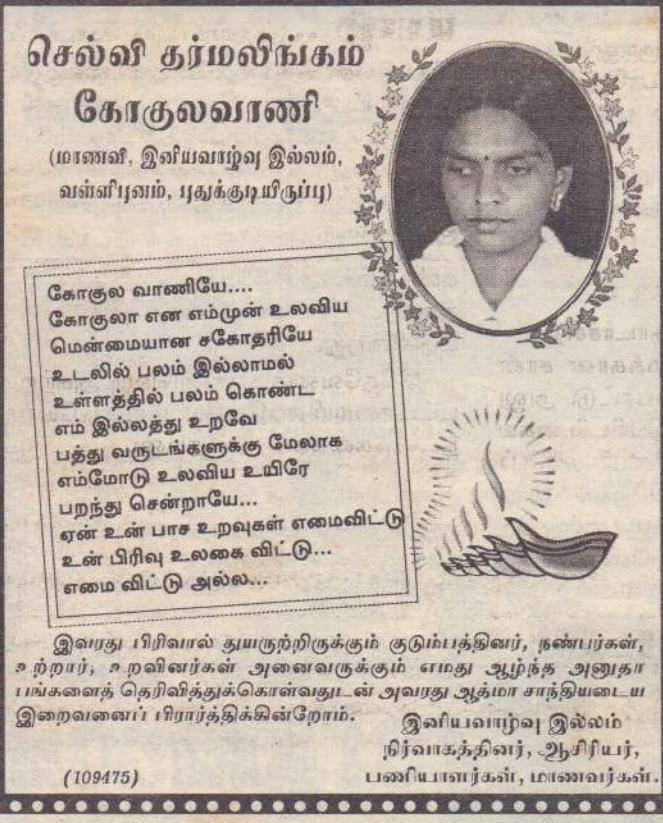 செல்வி தர்மலிங்கம்
கோகுலவாணி
(மாணவி, இனியவாழ்வு இல்லம்,
வள்ளிபுனம், புதுக்குடியிருப்பு)
கோகுல வாணியே....
கோகுலா என எம்முன் உலவிய
மென்மையான சகோதரியே
உடலில் பலம் இல்லாமல்
உள்ளத்தில் பலம் கொண்ட
எம் இல்லத்து உறவே
பத்து வருடங்களுக்கு மேலாக
எம்மோடு உலவிய உயிரே
பறந்து சென்றாயே...
ஏன் உன் பாச உறவுகள் எமைவிட்டு
உன் பிரிவு உலகை விட்டு...
எமை விட்டு அல்ல...
இவரது பிரிவால் துயருற்றிருக்கும் குடும்பத்தினர், நண்பர்கள்,
உற்றார், உறவினர்கள் அனைவருக்கும் எமது ஆழ்ந்த அனுதா
பங்களைத் தெரிவித்துக்கொள்வதுடன் அவரது ஆத்மா சாந்தியடைய
இறைவனைப் பிரார்த்திக்கின்றோம்.
இனியவாழ்வு இல்லம்
நிர்வாகத்தினர், ஆசிரியர்,
பணியாளர்கள், மாணவர்கள்.
(109475)